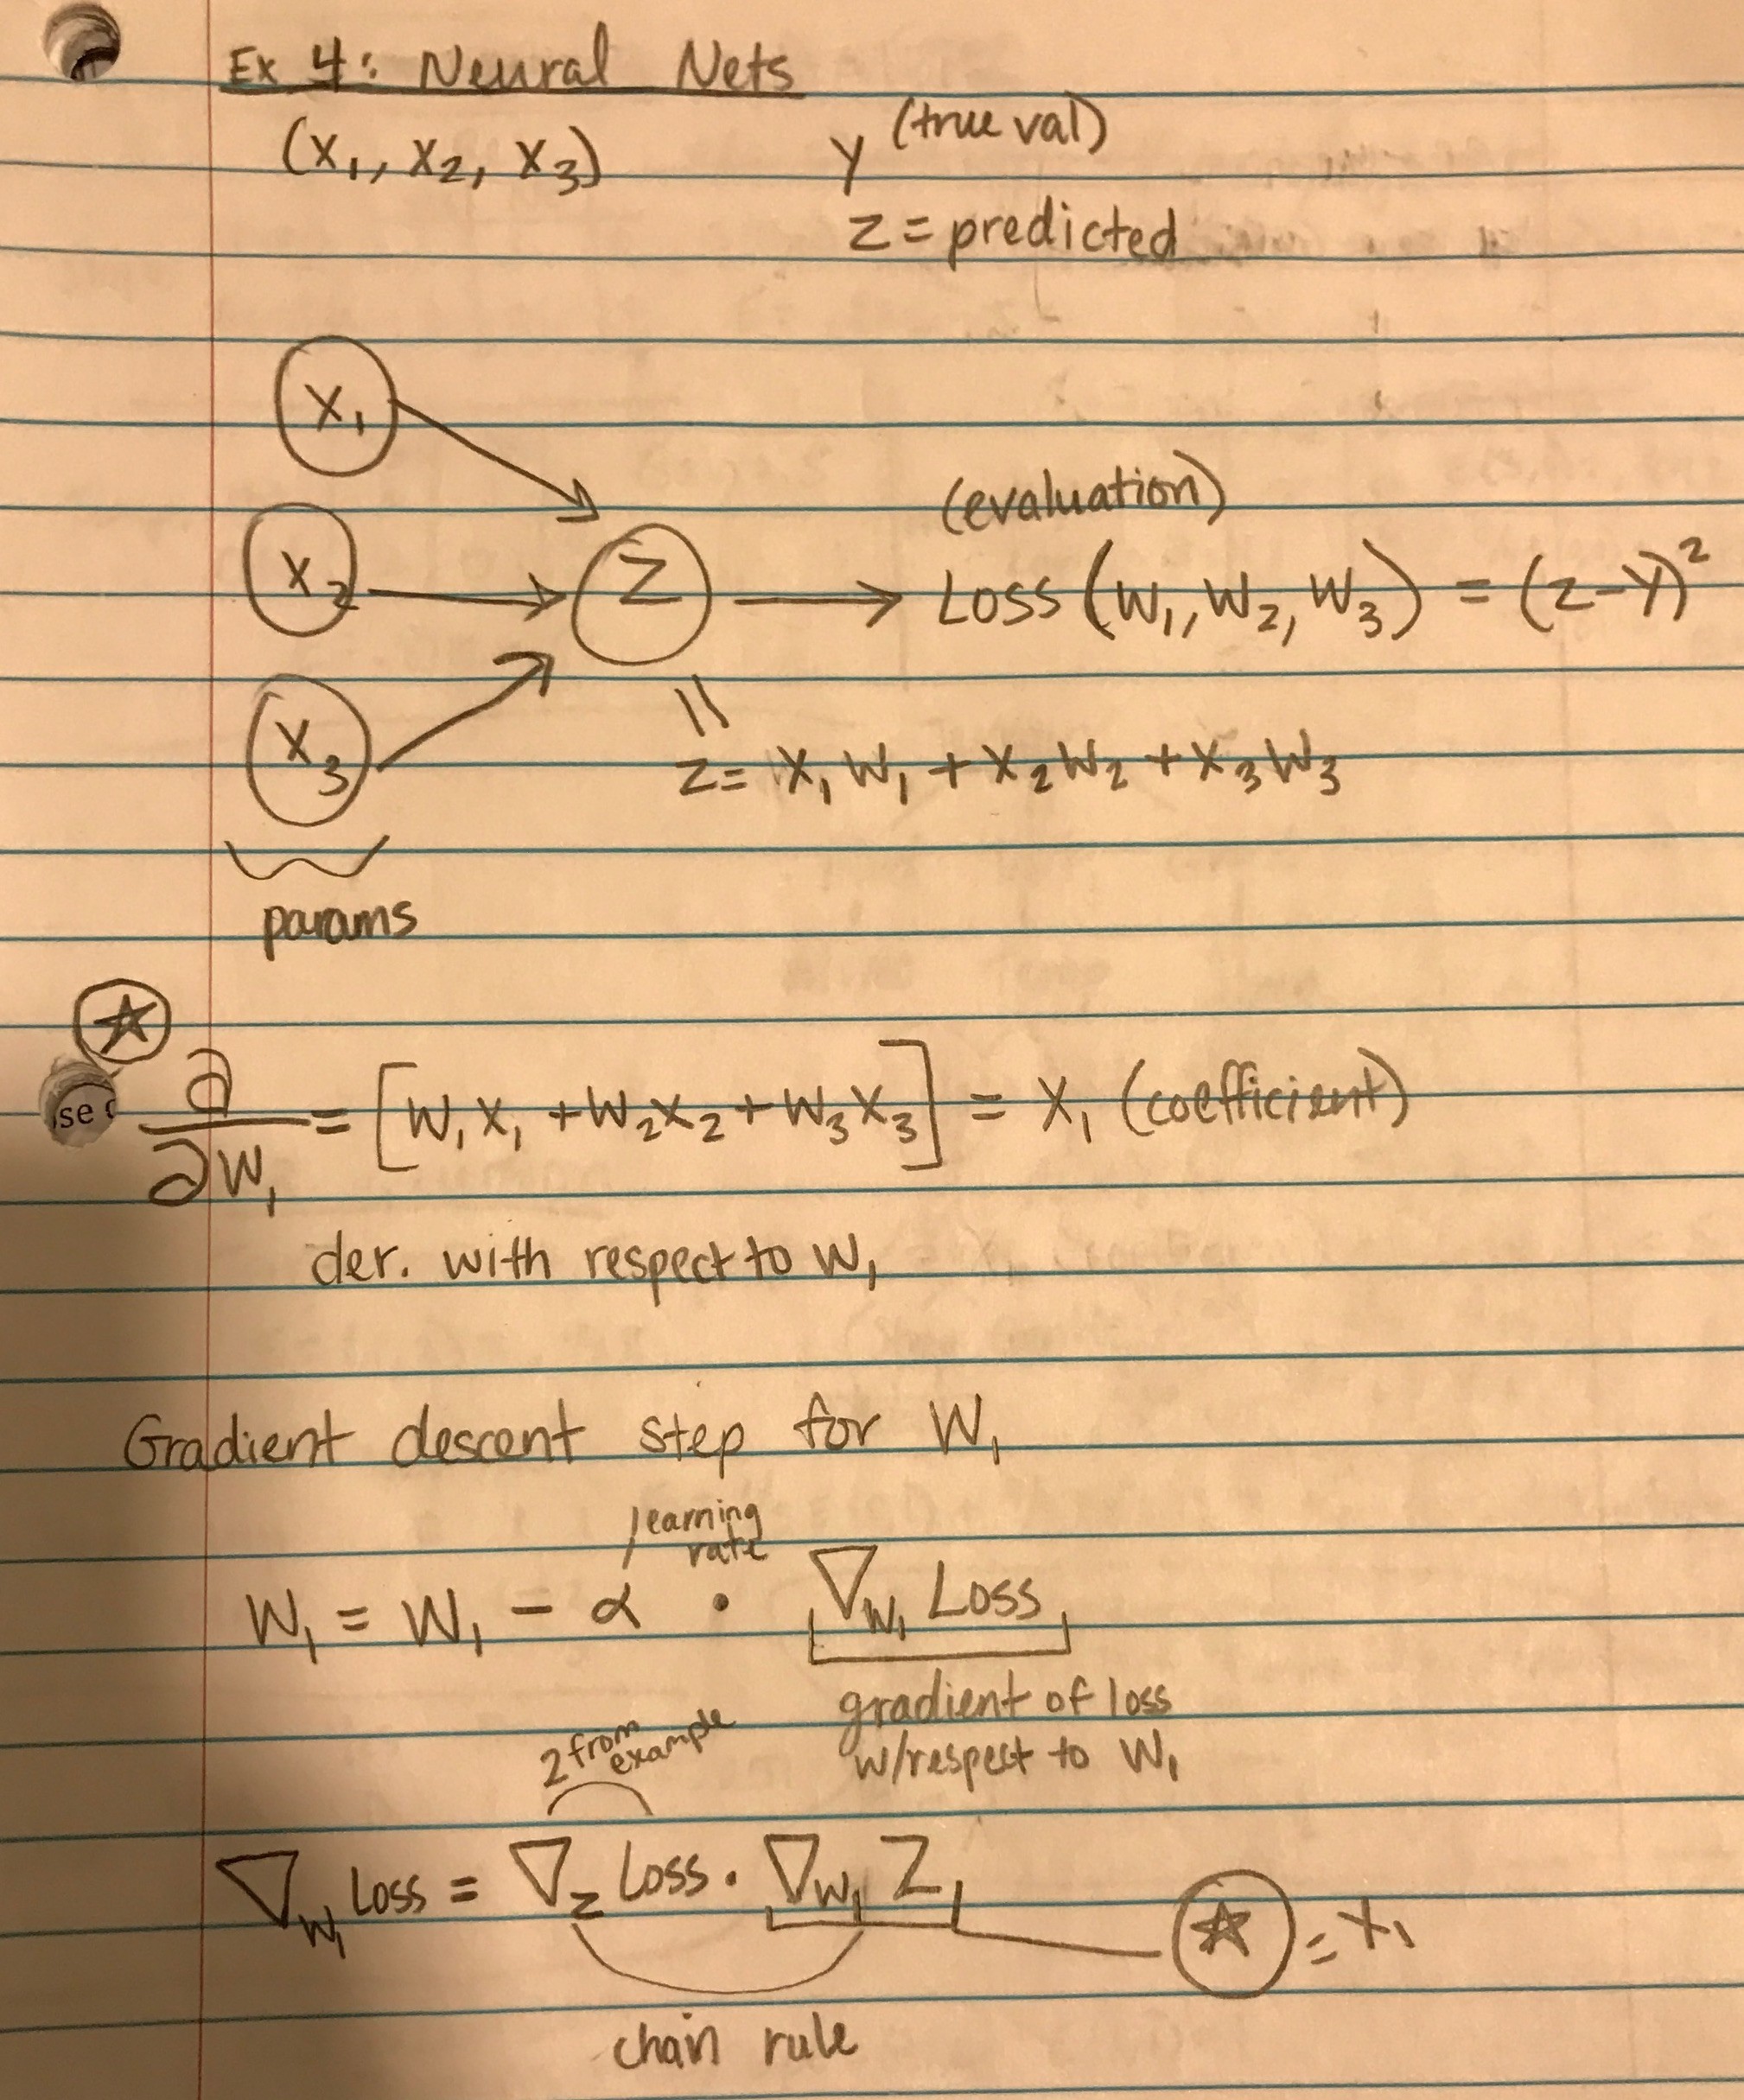 Ex 4: Neural Nets
(x₁, x₂, x₃) y (true val)
z = predicted
x₁
x₂
x₃
z
(evaluation)
Loss (w₁, w₂, w₃) = (z-y)²
||
z = x₁w₁ + x₂w₂ + x₃w₃
params
☆
∂/∂w₁ = [w₁x₁ + w₂x₂ + w₃x₃] = x₁ (coefficient)
se
der. with respect to w₁
Gradient descent step for w₁
learning
rate
w₁ = w₁ - α · ∇w₁ Loss
gradient of loss
w/respect to w₁
2 from
example
∇w₁ Loss = ∇z Loss · ∇w₁ z
☆ = x₁
chain rule